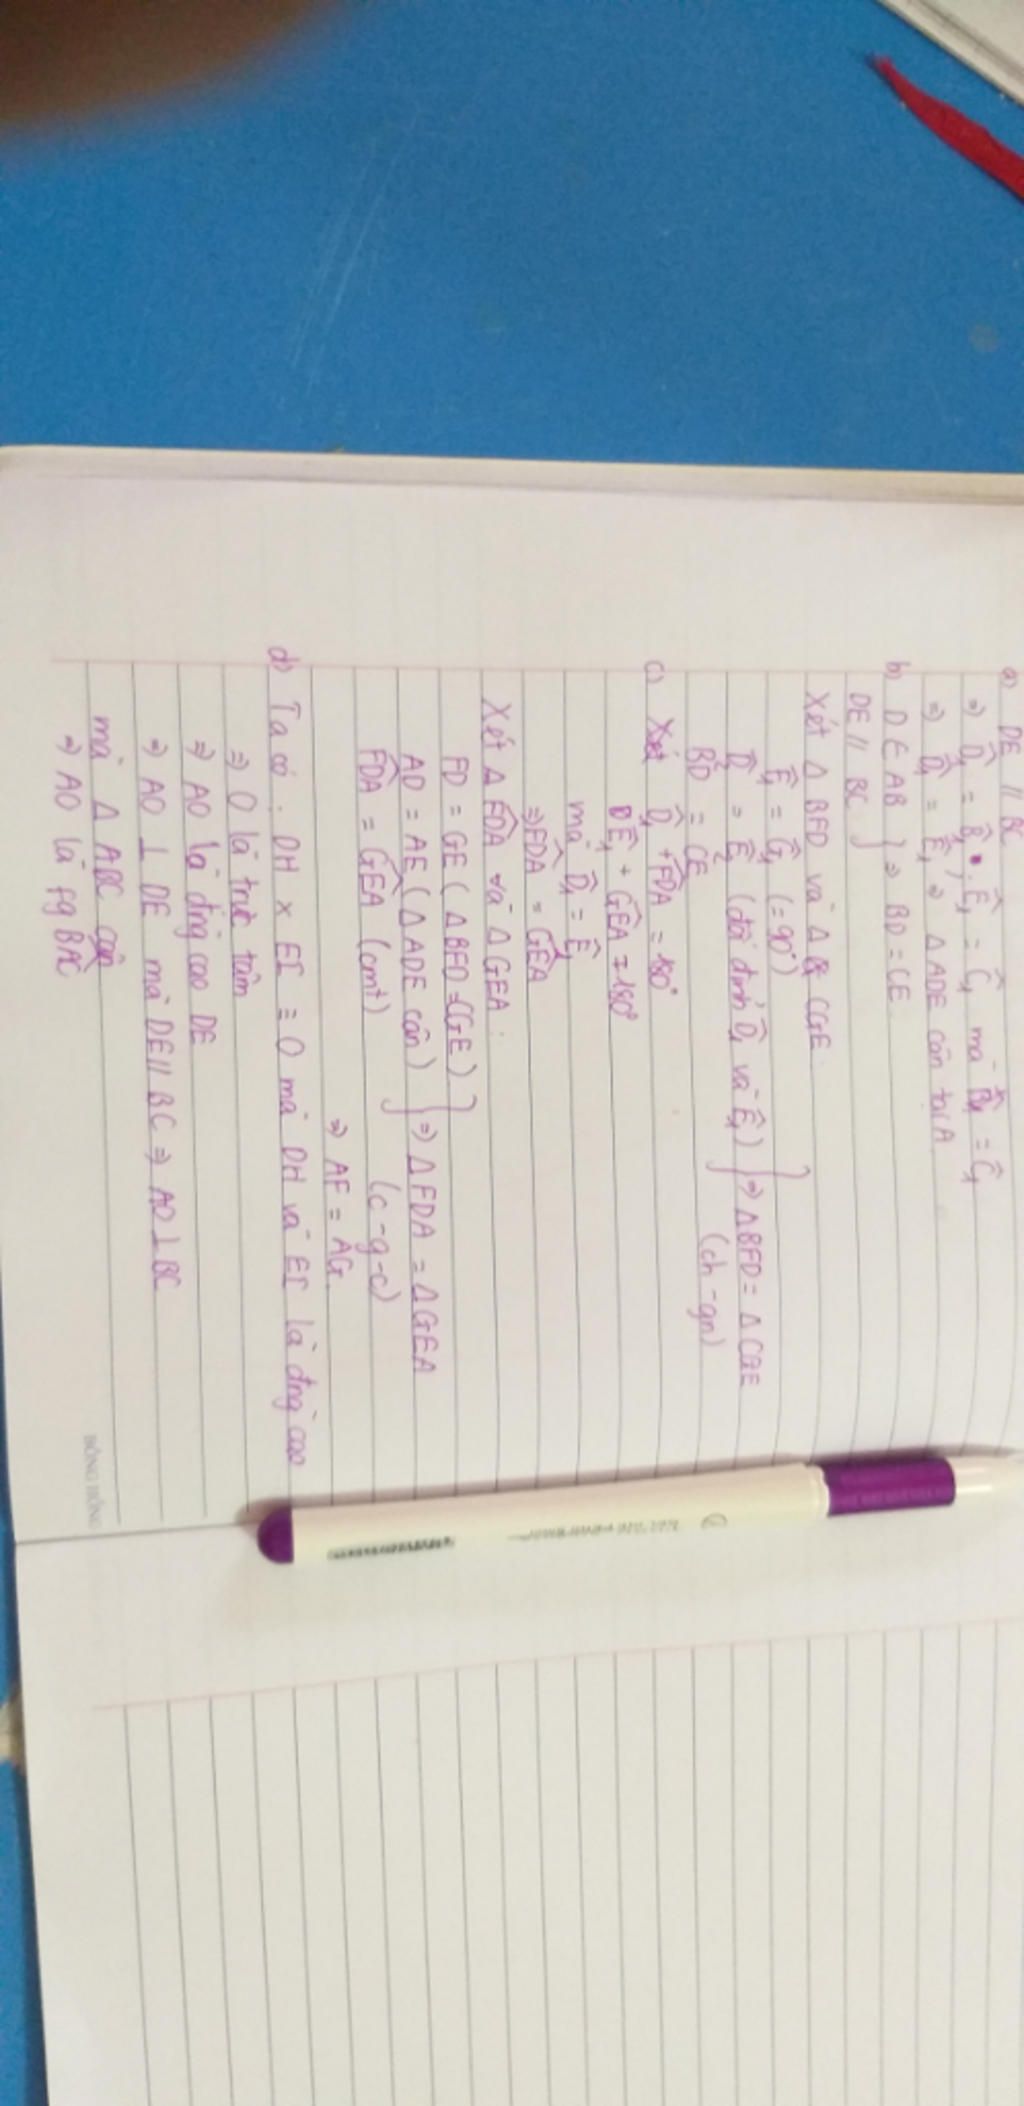 a) DE // BC
⇒ D̂₁ = B̂₁ ; Ê₁ = Ĉ₁ mà B̂₁ = Ĉ₁
⇒ D̂₁ = Ê₁ ⇒ Δ ADE cân tại A
b) D ∈ AB } ⇒ BD = CE
DE // BC
Xét Δ BFD và Δ CGE
F̂₁ = Ĝ₁ (= 90°)
D̂₁ = Ê₁ (đối đỉnh D̂₁ và Ê₁) } ⇒ Δ BFD = Δ CGE
BD = CE (ch - gn)
c) Xét D̂₁ + FDA = 180°
DÊ₁ + GEA = 180°
mà D̂₁ = Ê₁
⇒ FDA = GEA
Xét Δ FDA và Δ GEA :
FD = GE (Δ BFD = CGE)
AD = AE (Δ ADE cân) } ⇒ Δ FDA = Δ GEA
FDA = GEA (cmt) (c - g - c)
⇒ AF = AG
d) Ta có : DH x EI ≡ O mà DH và EI là đng̀ cao
⇒ O là trực tâm
⇒ AO là đng̀ cao DE
⇒ AO ⊥ DE mà DE // BC ⇒ AO ⊥ BC
mà Δ ABC cân
⇒ AO là fg BAC
BÔNG HỒNG